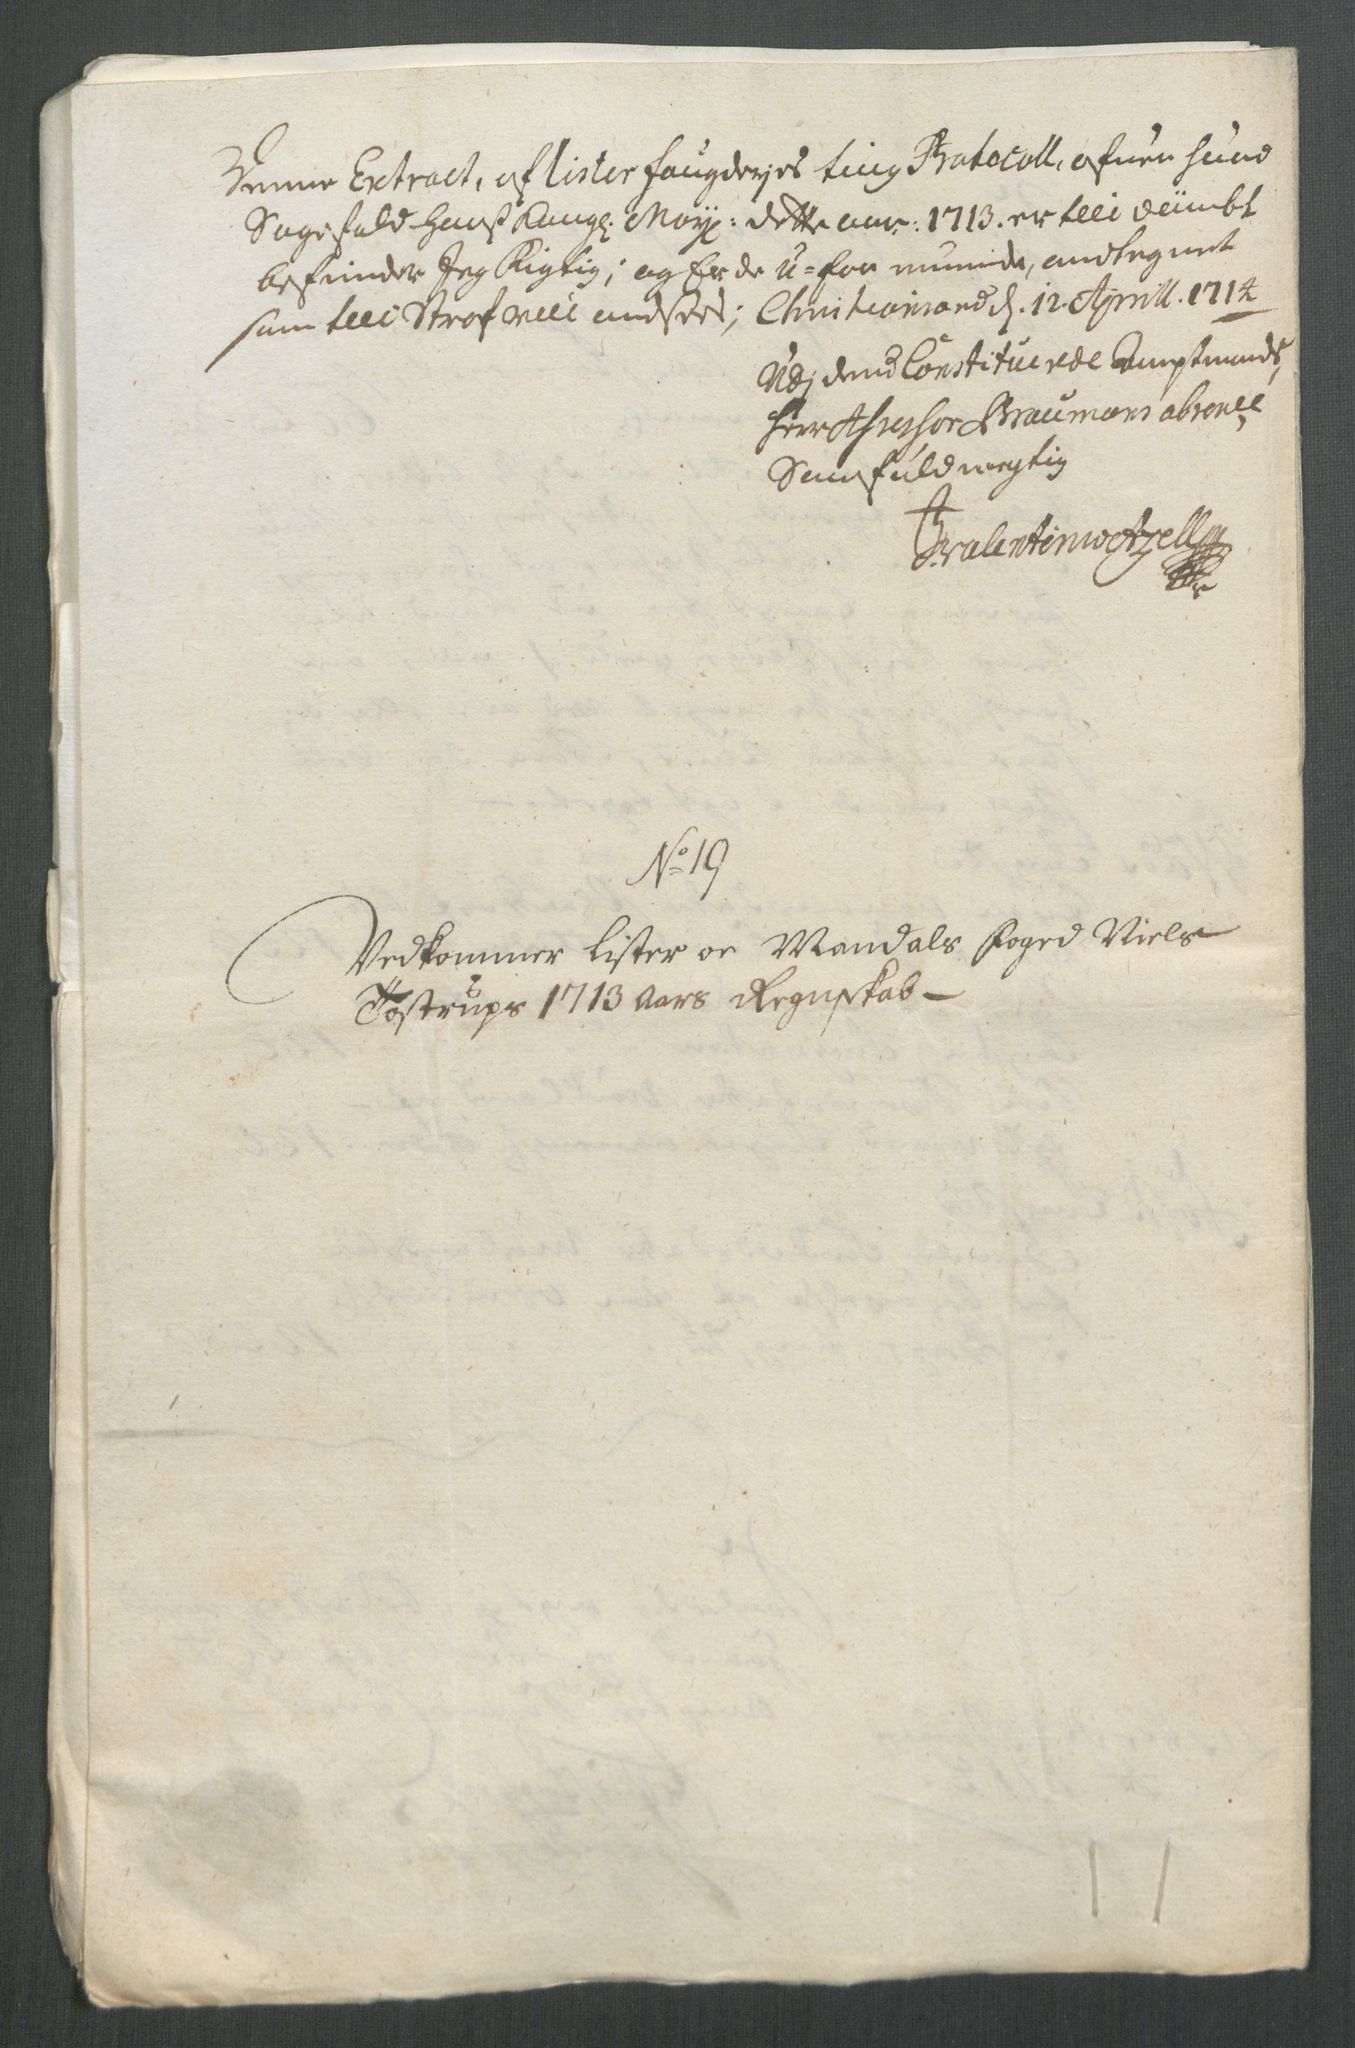 Denne Extract, af lister faugderjes ting Protocoll, ofuer huad
Sagefald hans Kongl: Mayt: dette aar: 1713. er till dømbt
befinder Jeg Rigtig; og Er de u-for muende, andtegnet
som till Straf vill andsees; Christiansand d. 12 Aprill. 1714
Udj dend Constituerede Amptmands,
Herr Assessor Braumans absence
Som fuldmegtig
Valentin Wetzell
No 19
Vedkommer Lister oc Mandals foged Niels
Tostrups 1713 Aars Regnskab